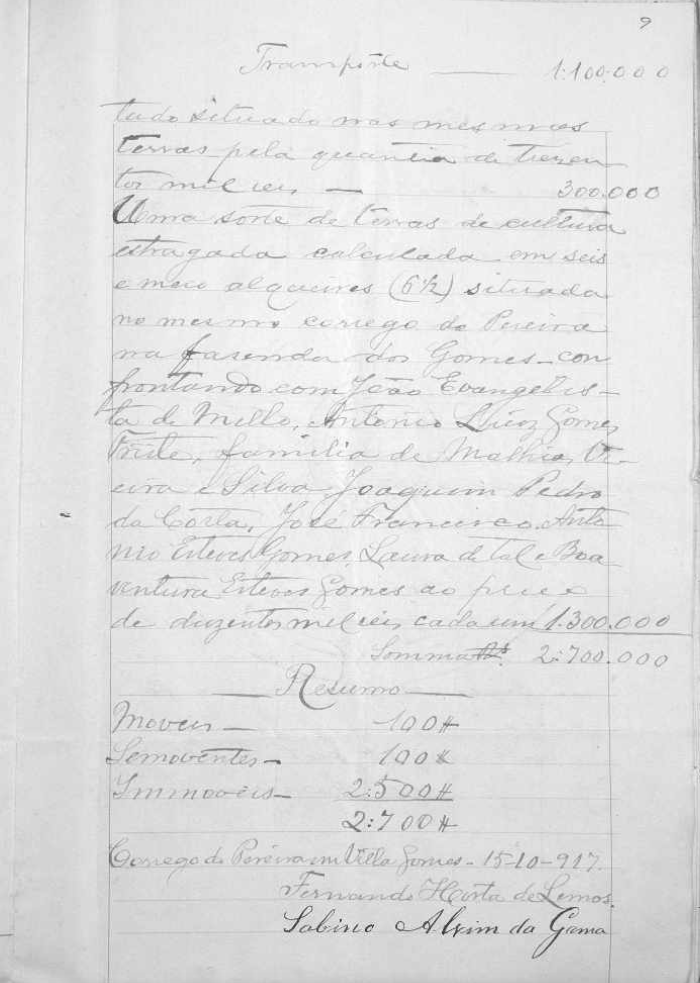 9
Transporte — 1:100.000
tudo situado nas mesmas
terras pela quantia de trezen
tos mil reis — 300.000
Uma sorte de terras de cultura
estragada calculada em seis
e meio alqueires (6½) situada
no mesmo corrego do Pereira
na fazenda dos Gomes - con
frontando com João Evangelis-
ta de Mello, Antonio Gomes
familia de Vi-
eira e Silva Joaquim Pedro
da Costa, José Francisco, Anto
nio Esteves Gomes, Laura de tal e Boa
ventura Esteves Gomes ao preço
de duzentos mil reis cada um 1.300.000
Somma 2:700.000
— Resumo —
Moveis — 100#
Semoventes — 100#
Immoveis — 2:500#
2:700#
Corrego do Pereira em Villa Gomes - 15-10-917.
Fernando Horta de Lemos.
Sabino Alvim da Gama